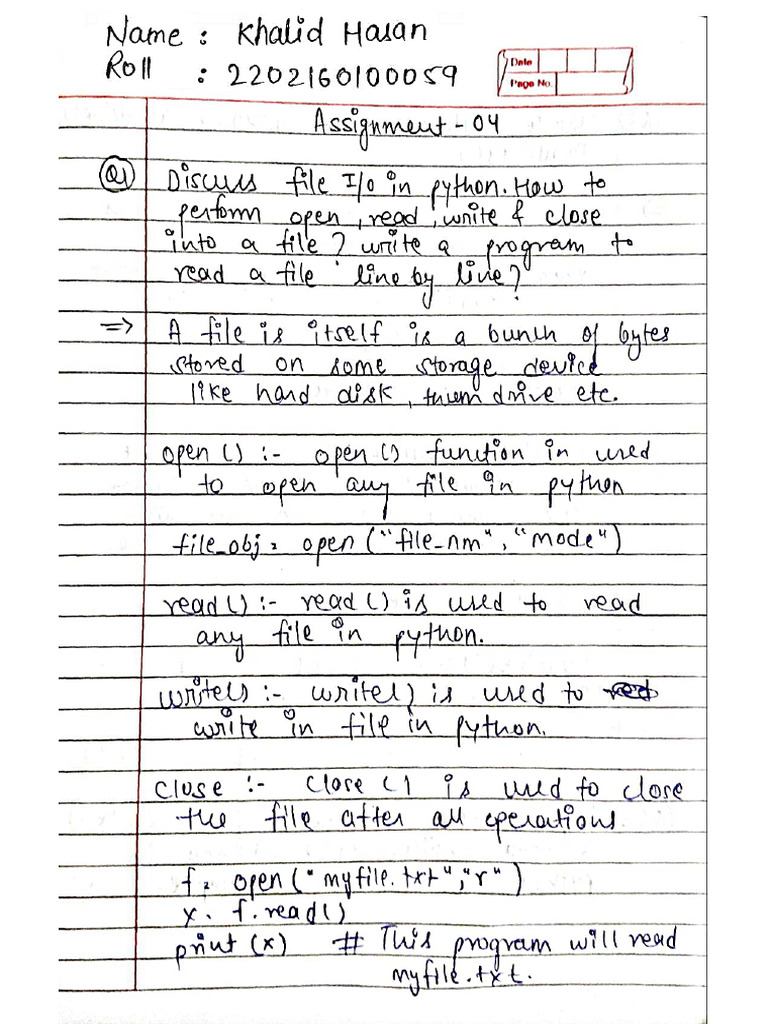 Name : Khalid Hasan
Roll : 2202160100059
Date
Page No.
Assignment - 04
Q1 Discuss file I/O in python. How to
perform open, read, write & close
into a file? write a program to
read a file line by line?
=> A file is itself is a bunch of bytes
stored on some storage device
like hard disk, thum drive etc.
open () :- open () function in used
to open any file in python
file_obj = open ("file_nm", "mode")
read () :- read () is used to read
any file in python.
write() :- write() is used to
write in file in python.
close :- close () is used to close
the file after all operations.
f = open ("myfile.txt", "r")
x = f.read()
print (x) # This program will read
myfile.txt.